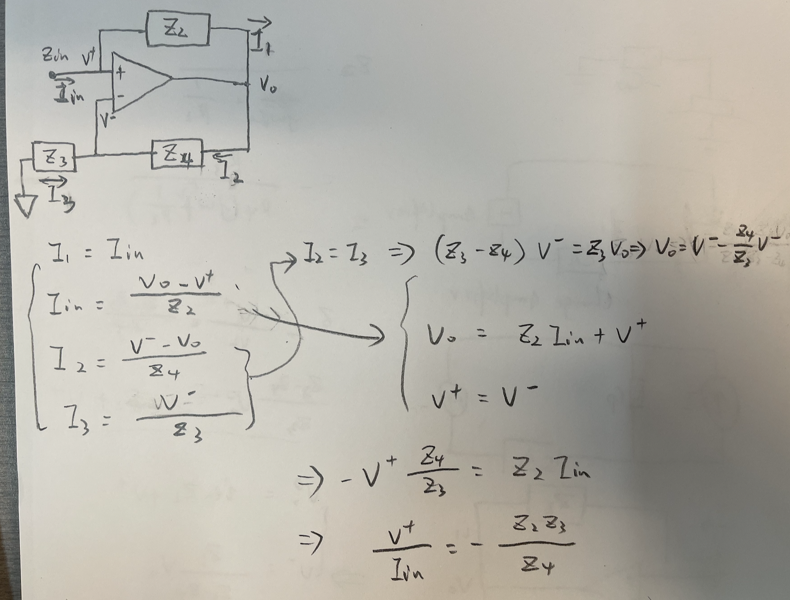 Z₂
I₁
Zin V⁺
+
Iin
-
V⁻
V₀
Z₃
Z₄
I₂
I₃
I₁ = Iin
Iin = (V₀ - V⁺) / Z₂
I₂ = (V⁻ - V₀) / Z₄
I₃ = V⁻ / Z₃
I₂ = I₃ ⇒ (Z₃ - Z₄) V⁻ = Z₃ V₀ ⇒ V₀ = V⁻ - Z₄/Z₃ V⁻
V₀ = Z₂ Iin + V⁺
V⁺ = V⁻
⇒ - V⁺ Z₄/Z₃ = Z₂ Iin
⇒ V⁺/Iin = - Z₂ Z₃ / Z₄